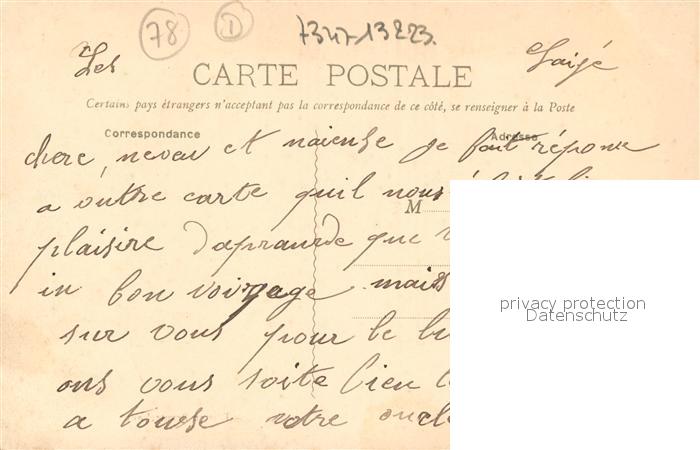 78 D 7347-13223.
Les Laigé
CARTE POSTALE
Certains pays étrangers n'acceptant pas la correspondance de ce côté, se renseigner à la Poste
Correspondance Adresse
chere neveu et naiense je fait réponse
a vôtre carte quil nous
M
plaisire daprande que
in bon voiyage mais
sur vous pour le
ons vous soite bien
a touse votre oncle
privacy protection
Datenschutz